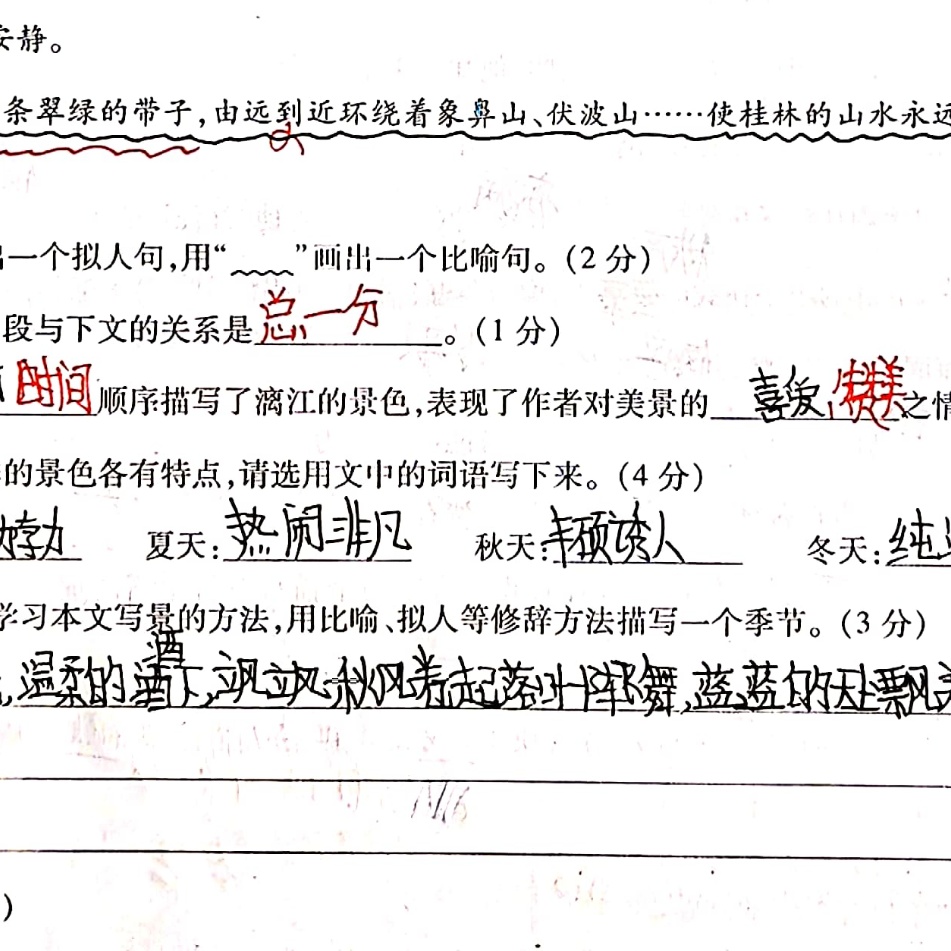 安静。
条翠绿的带子,由远到近环绕着象鼻山、伏波山……使桂林的山水永远
出一个拟人句,用“﹏﹏”画出一个比喻句。(2分)
段与下文的关系是总一分。(1分)
时间顺序描写了漓江的景色,表现了作者对美景的喜爱,赞美之情
的景色各有特点,请选用文中的词语写下来。(4分)
勃勃 夏天:热闹非凡 秋天:丰硕诱人 冬天:纯
学习本文写景的方法,用比喻、拟人等修辞方法描写一个季节。(3分)
洒
,温柔的洒下,飒飒秋风卷起落叶 舞,蓝蓝的天上飘着
)